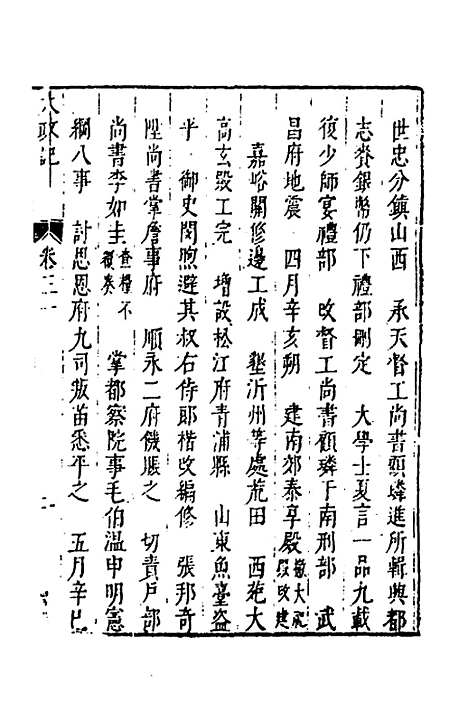 世忠分鎮山西　承天督工尚書顧璘進所輯興都
志賚銀幣仍下禮部刪定　大學士夏言一品九載
復少師宴禮部　改督工尚書顧璘于南刑部　武
昌府地震　四月辛亥朔　建南郊泰享殿撤大祀殿改建
嘉峪關修邊工成　墾沂州等處荒田　西苑大
高玄殿工完　增設松江府青浦縣　山東魚臺盜
平　御史閔煦避其叔右侍郎楷改編修　張邦奇
陞尚書掌詹事府　順永二府饑賑之　切責戶部
尚書李如圭查糧不覆奏　掌都察院事毛伯溫申明憲
綱八事　討思恩府九司叛苗悉平之　五月辛巳
大政記　卷二十